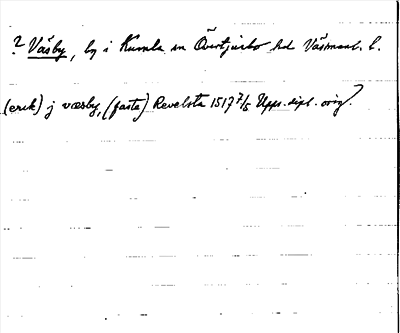 ? Väsby, by i Kumla sn Övertjurbo hd Västmanl. l.
(erik) j væsby, (fasta) Revelsta 1517 7/5 Upps. dipl. orig?